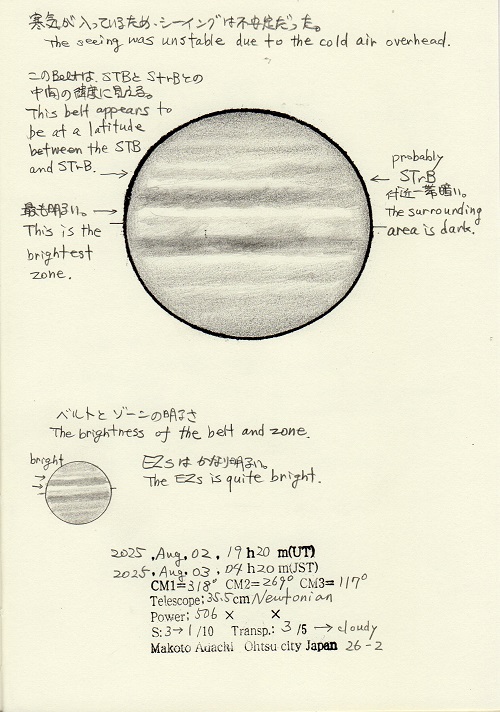 寒気が入っているため、シーイングは不安定だった。
The seeing was unstable due to the cold air overhead.
このBeltは、STBとStrBとの
中間の緯度に見える。
This belt appears to
be at a latitude
between the STB
and STrB.
probably
STrB
付近一帯暗い。
The surrounding
area is dark.
最も明るい。
This is the
brightest
zone.
ベルトとゾーンの明るさ
The brightness of the belt and zone.
bright
EZsはかなり明るい。
The EZs is quite bright.
2025, Aug, 02, 19h20m(UT)
2025, Aug, 03, 04h20m(JST)
CM1=318° CM2=269° CM3=117°
Telescope; 35.5cm Newtonian
Power; 506 × ×
S: 3→1/10 Transp.: 3/5 → cloudy
Makoto Adachi Ohtsu city Japan 26-2